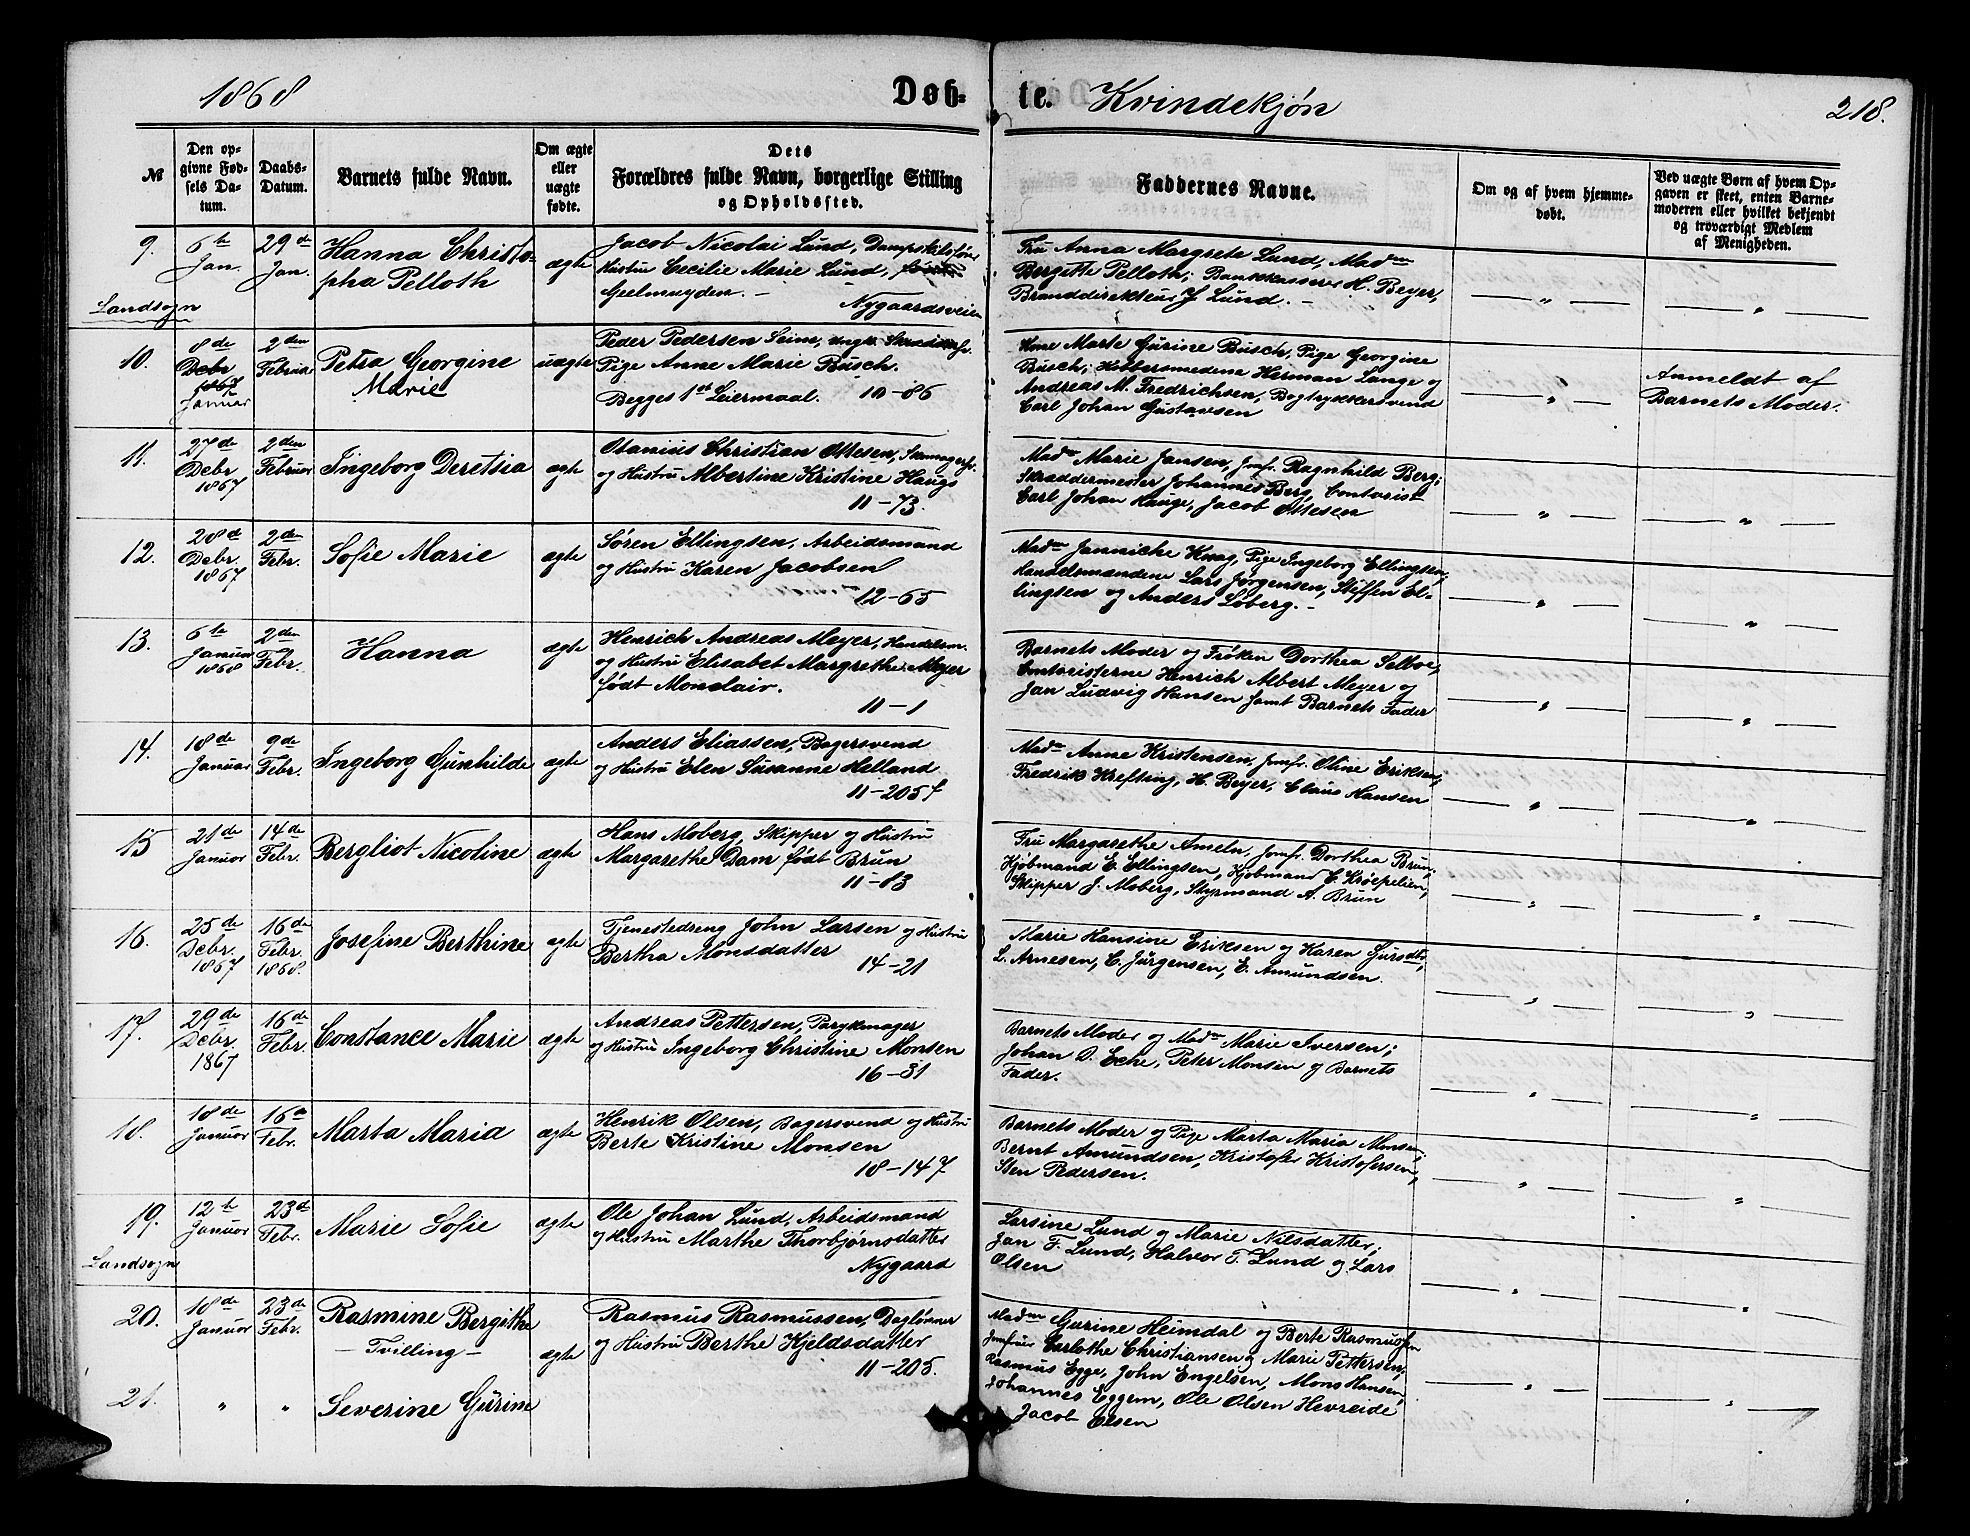 1868
Døb-
te.
Kvindekjøn
218.
№
Den op-
givne Fød-
sels Da-
tum.
Daabs-
Datum.
Barnets fulde Navn.
Om ægte
eller
uægte
fødte.
Dets
Forældres fulde Navn, borgerlige Stilling
og Opholdssted.
Faddernes Navne.
Om og af hvem hjemme-
døbt.
Ved uægte Børn af hvem Op-
gaven er skeet, enten Barne-
moderen eller hvilket bekjendt
og troværdigt Medlem
af Menigheden.
9.
Landsogn
6te
Jan.
29de
Jan.
Hanna Christo-
pha Pelloth
ægte
Jacob Nicolai Lund, Dampskibsfører
Hustru Cecilie Marie Lund,
Geelmuyden. -
Nygaardsveien
Fru Anna Margrete Lund, Madm
Bergitte Pelloth; Bankkasserer H. Beyer,
Branddirekteur J. Lund. -
10.
8de
Debr
1867
Januar
2den
Februar
Petra Georgine
Marie
uægte
Peder Pedersen Seine, ungk.
Pige Anne Marie Busch.
Begges 1st Leiermaal. 10-86
Kone Marte Gurine Busch, Pige Georgine
Busch; Kobbersmedene Herman Lange og
Andreas M. Fredrichsen, Bogtrykkersvend
Carl Johan Gustavsen
Anmeldt af
Barnets Moder.
11.
27de
Debr
1867
2den
Februar
Ingeborg Deretsia
ægte
Otanius Christian Ottesen, Skomagersv.
og Hustru Albertine Kristine Haugs
11-73.
Madm Marie Jansen, Jomfr. Ragnhild Berg;
Skræddermester Johannes Berg, Contorist
Carl Johan Hauge, Jacob Ottesen
12.
28de
Debr.
1867
2den
Febr.
Sofie Marie
ægte
Søren Ellingsen, Arbeidsmand
og Hustru Karen Jacobsen
12-65
Madm Jannicke Knag, Pige Ingeborg Ellingsen;
Handelsmændene Lars Jørgensen, Steffen El-
lingsen og Anders Løberg. -
13.
6te
Januar
1868
2den
Febr.
Hanna
ægte
Henrich Andreas Meyer, Handelsm.
og Hustru Elisabet Margrethe Meyer
født Monclair.
11-1
Barnets Moder og Frøken Dorthea Seltoe,
Contoristerne Henrich Albert Meyer og
Jan Ludvig Hansen samt Barnets Fader
14.
18de
Januar
9de
Febr.
Ingeborg Gunhilde
ægte
Anders Eliassen, Bagersvend
og Hustru Elen Susanne Helland
11-205 f
Madm Anne Kristensen, Jomfr. Oline Eriksen;
Fredrik Krefting, H. Beyer, Claus Hansen
15
21de
Januar
14de
Febr.
Bergliot Nicoline
ægte
Hans Moberg, Skipper og Hustru
Margarethe Dam født Brun
11-83
Fru Margarethe Ameln, Jomfr. Dorthea Brun;
Kjøbmand E. Ellingsen, Kjøbmand C. Krøepelien,
Skipper J. Moberg, Styrmand A. Brun
16.
25de
Debr.
1867
16de
Febr.
1868.
Josefine Berthine
ægte
Tjenestedreng John Larsen og Hustru
Bertha Monsdatter
14-21
Marie Hansine Eriksen og Karen Gursdtr,
L. Arnesen, C. Jürgensen, E. Amundsen.
17.
29de
Debr.
1867
16de
Febr.
Constance Marie
ægte
Andreas Pettersen, Parykmager
og Hustru Ingeborg Christine Monsen
16-31
Barnets Moder og Madm Marie Iversen;
Johan D. Eche, Peter Monsen og Barnets
Fader.
18.
18de
Januar
16de
Febr.
Marta Maria
ægte
Henrik Olsen, Bagersvend og Hustru
Berte Kristine Monsen
18-147
Barnets Moder og Pige Marta Maria Monsen;
Bernt Amundsen, Kristofer Kristofersen,
Sten Pedersen.
19.
Landsogn
12te
Januar
23de
Febr.
Marie Sofie
ægte
Ole Johan Lund, Arbeidsmand
og Hustru Marthe Thorbjørnsdatter
Nygaard
Larsine Lund og Marie Nilsdatter;
Jan F. Lund, Halvor T. Lund og Lars
Olsen
20.
18de
Januar
23de
Febr.
Rasmine Bergithe
- Tvilling -
ægte
Rasmus Rasmussen, Daglønner
og Hustru Berthe Kjeldsdatter
11-205.
Madm Gurine Heimdal og Berte Rasmussen
Jomfruer Carlothe Christiansen og Marie Pettersen;
Rasmus Egge, John Engelsen, Mons Hansen,
Johannes Eggem, Ole Olsen Hevreide
Jacob Olsen
21.
"
"
Severine Gurine